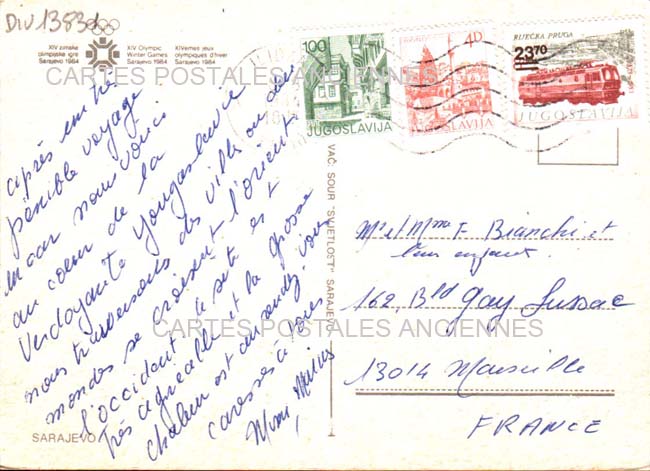 DIV1383d
XIV zimske
olimpijske igre
Sarajevo 1984
XIV Olympic
Winter Games
Sarajevo 1984
XIVemes jeux
olympiques d'hiver
Sarajevo 1984
100
JUGOSLAVIJA
4D
JUGOSLAVIJA
RIJEČKA PRUGA
23 70
JUGOSLAVIJA
CARTES POSTALES ANCIENNES
après un très
pénible voyage
en car nous voici
au coeur de la
Verdoyante Yougoslavie
nous traversons des villes ou deux
mondes se croisent l'orient
l'occident le site est
très agréable et la grosse
chaleur est au rendez-vous
caresses à tous
Mimi,
VAČ. SOUR "SVJETLOST" SARAJEVO
Mr et Mme F. Bianchi et
leur enfant.
162, Bld Gay Lussac
CARTES POSTALES ANCIENNES
13014 Marseille
FRANCE
SARAJEVO